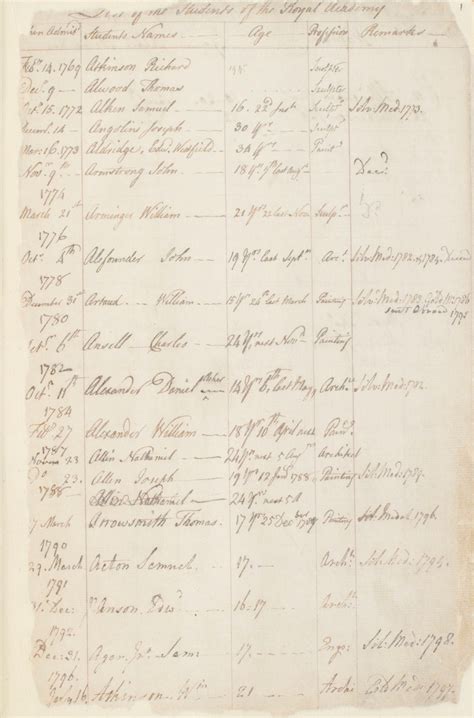 List of the Students of the Royal Academy 1
when Admis Students Names Age Profession Remarks
Feb. 14. 1769 Atkinson Richard Sculptr
Dec. 9 Alwood Thomas Sculptr
Oct. 15. 1772 Alken Samuel 16. 22d Sculptr Silv Med: 1773.
14 Angolini Joseph 30 yrs Sculptr
Mar: 16. 1773 Aldridge, Edw. 34 yrs Paintr
Novr. 9th Armstrong John 18 yrs last Decd
1774
March 21st Arminger William 21 yrs 22 last Nov. Sculpr Do
1776
Octr. 4th Alefounder John 19 yrs last Septr Arct. Silv: Med: 1782. 1784. Decd
1778
December 31st Artaud William 15 yrs 24th last March Painting Silv: Med: 1783. Gold Mr. 1786
sent Abroad 1795
1780
Octr. 6th Ansell Charles 24 yrs, next Novr Painting
1782
Octr. 11th Alexander Daniel Asher 14 yrs 6th, last May, Archt. Silv: Med: 1782.
1784
Feb. 27 Alexander William 18 yrs 10th April next Paintr.
1787
Novem 23 Allin Nathaniel 24 yrs next 5 Augt Architect
Do 23. Allen Joseph 19 yrs 12 Jany 1788 Painting Silv. Med. 1789.
1788 Allin Nathaniel 24 yrs next 5 A
7 March Arrowsmith Thomas. 17 yrs 25 Decr 1787 Painting Sil: Medal 1796.
1790
29. March Acton Samuel 17. Archt: Sil. Med: 1794.
1791
31. Dec: I'Anson Edwd 16-17 Archt:
1792.
Dec: 21. Agar Jno. Saml Engr: Sil: Med: 1798.
1796.
16 Atkinson Wm 21 Archt Gold Mr 1797.